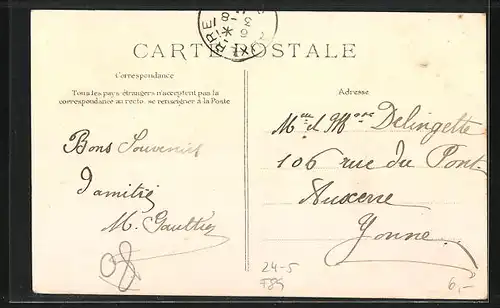 CARTE POSTALE
Correspondance
Tous les pays étrangers n'acceptent pas la
correspondance au recto, se renseigner à la Poste
Bons Souvenirs
d'amitié
M. Gaultier
08
Adresse
Mr et Mme Delingette
106 rue du Pont
Auxerre
Yonne
24-5
F89
6,-